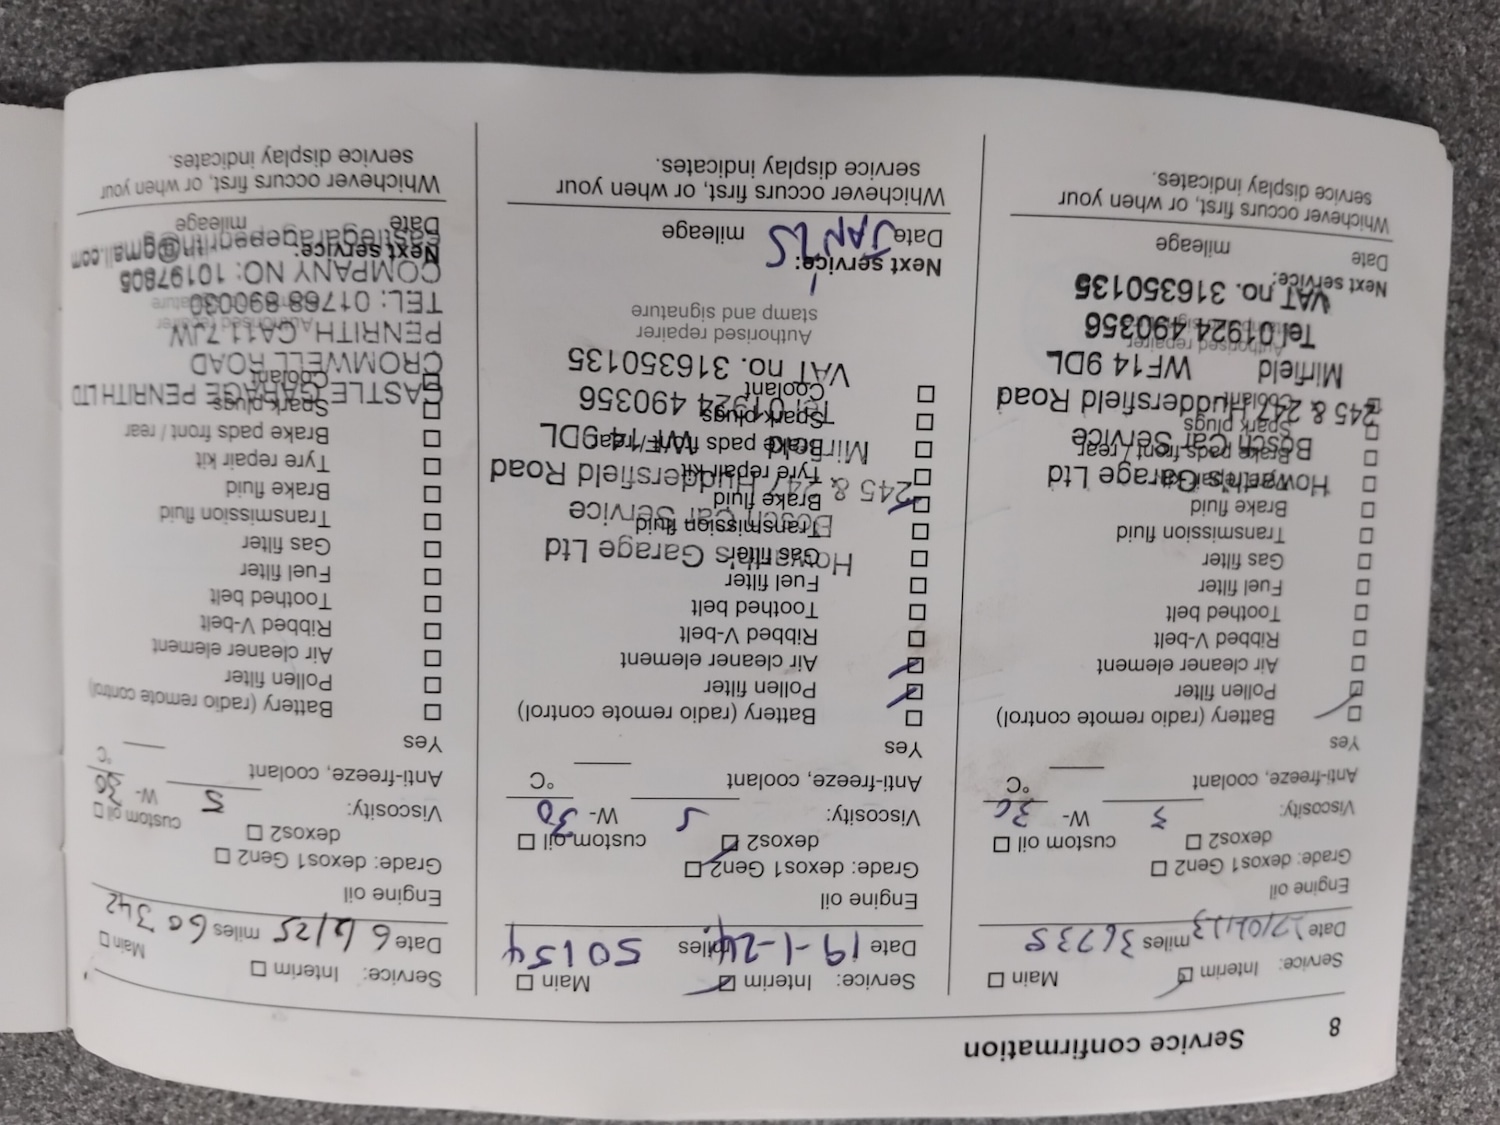 8 Service confirmation
Service: Interim Main
Date miles 36735
Engine oil
Grade: dexos1 Gen2
dexos2 custom oil
Viscosity: W- 30
Anti-freeze, coolant °C
Yes
Battery (radio remote control)
Pollen filter
Air cleaner element
Ribbed V-belt
Toothed belt
Fuel filter
Gas filter
Transmission fluid
Brake fluid
Tyre repair kit
Howarth's Garage Ltd
Brake pads front / rear
Bosch Car Service
Spark plugs
Coolant
245 & 247 Huddersfield Road
Mirfield WF14 9DL
Authorised repairer
stamp and signature
Tel 01924 490356
VAT no. 316350135
Next service:
Date mileage
Whichever occurs first, or when your
service display indicates.
Service: Interim Main
Date 19-1-24 miles 50154
Engine oil
Grade: dexos1 Gen2
dexos2 custom oil
Viscosity: 5 W- 30
Anti-freeze, coolant °C
Yes
Battery (radio remote control)
Pollen filter
Air cleaner element
Ribbed V-belt
Toothed belt
Fuel filter
Gas filter
Howarth's Garage Ltd
Transmission fluid
Bosch Car Service
Brake fluid
245 & 247 Huddersfield Road
Tyre repair kit
Brake pads front / rear
Mirfield WF14 9DL
Spark plugs
Tel 01924 490356
Coolant
VAT no. 316350135
Authorised repairer
stamp and signature
Next service:
Date JAN 25 mileage
Whichever occurs first, or when your
service display indicates.
Service: Interim Main
Date miles 60 342
Engine oil
Grade: dexos1 Gen2
dexos2 custom oil
Viscosity: 5 W- 30
Anti-freeze, coolant °C
Yes
Battery (radio remote control)
Pollen filter
Air cleaner element
Ribbed V-belt
Toothed belt
Fuel filter
Gas filter
Transmission fluid
Brake fluid
Tyre repair kit
Brake pads front / rear
Spark plugs
CASTLE GARAGE PENRITH LTD
Coolant
CROMWELL ROAD
PENRITH. CA11 7JW
Authorised repairer
stamp and signature
TEL: 01768 890030
COMPANY NO: 10197805
Next service:
castlegaragepenrith@gmail.com
Date mileage
Whichever occurs first, or when your
service display indicates.